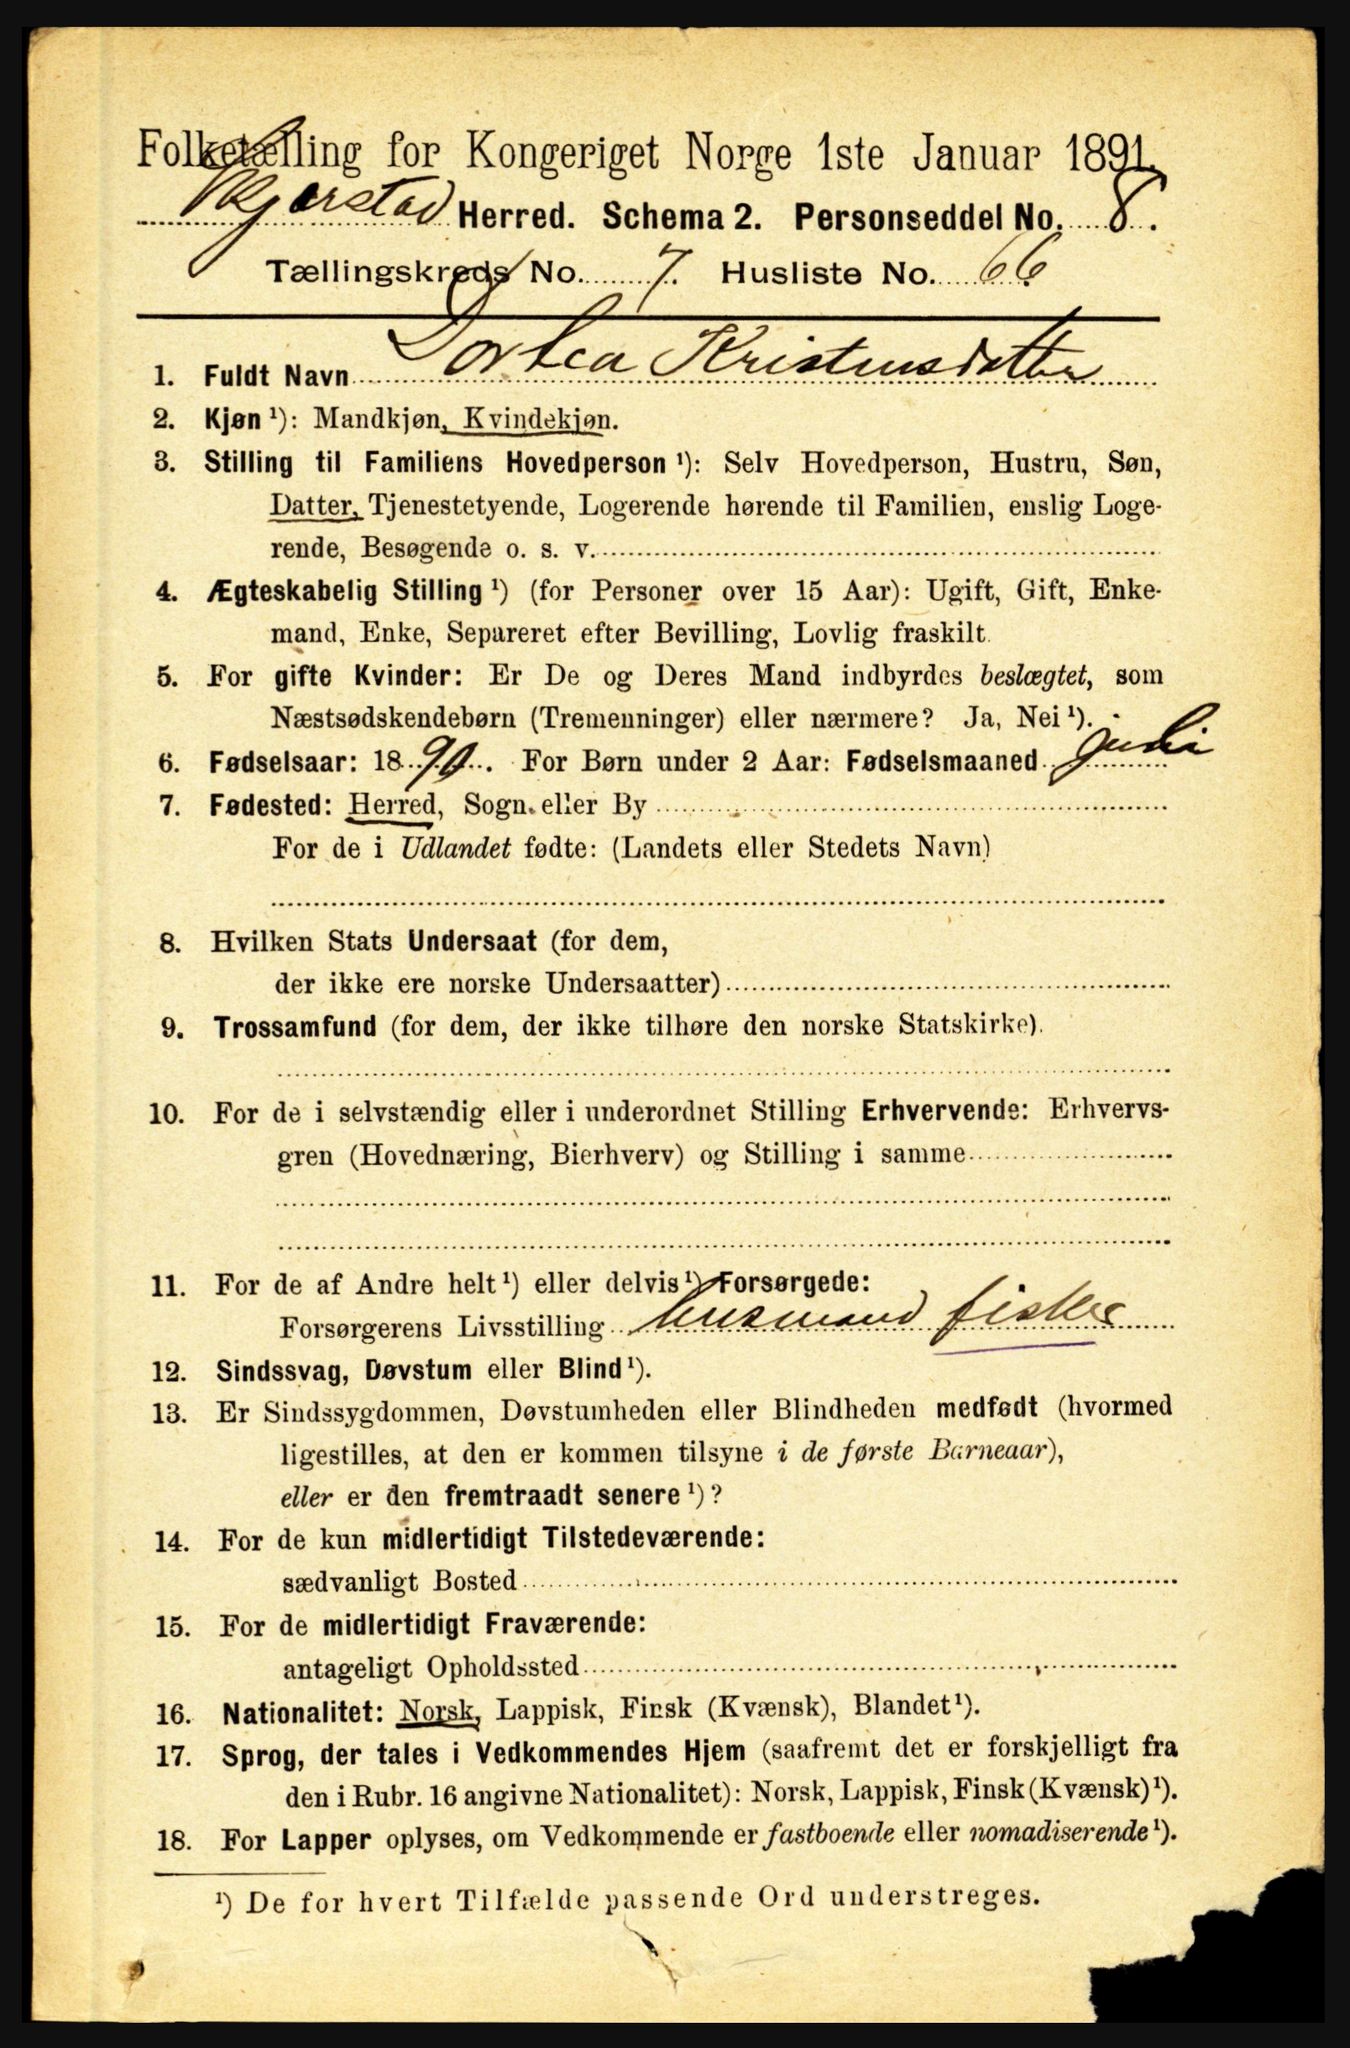 Folketælling for Kongeriget Norge 1ste Januar 1891.
Kjerstad Herred. Schema 2. Personseddel No. 8.
Tællingskreds No. 7. Husliste No. 66
1. Fuldt Navn Dortea Kristensdatter
2. Kjøn ¹): Mandkjøn, Kvindekjøn.
3. Stilling til Familiens Hovedperson ¹): Selv Hovedperson, Hustru, Søn,
Datter, Tjenestetyende, Logerende hørende til Familien, enslig Loge-
rende, Besøgende o. s. v.
4. Ægteskabelig Stilling ¹) (for Personer over 15 Aar): Ugift, Gift, Enke-
mand, Enke, Separeret efter Bevilling, Lovlig fraskilt.
5. For gifte Kvinder: Er De og Deres Mand indbyrdes beslægtet, som
Næstsødskendebørn (Tremenninger) eller nærmere? Ja, Nei ¹).
6. Fødselsaar: 1890. For Børn under 2 Aar: Fødselsmaaned juli
7. Fødested: Herred, Sogn eller By
For de i Udlandet fødte: (Landets eller Stedets Navn)
8. Hvilken Stats Undersaat (for dem,
der ikke ere norske Undersaatter)
9. Trossamfund (for dem, der ikke tilhøre den norske Statskirke).
10. For de i selvstændig eller i underordnet Stilling Erhvervende: Erhvervs-
gren (Hovednæring, Bierhverv) og Stilling i samme
11. For de af Andre helt ¹) eller delvis ¹) Forsørgede:
Forsørgerens Livsstilling husmand fisker
12. Sindssvag, Døvstum eller Blind ¹).
13. Er Sindssygdommen, Døvstumheden eller Blindheden medfødt (hvormed
ligestilles, at den er kommen tilsyne i de første Barneaar),
eller er den fremtraadt senere ¹)?
14. For de kun midlertidigt Tilstedeværende:
sædvanligt Bosted
15. For de midlertidigt Fraværende:
antageligt Opholdssted
16. Nationalitet: Norsk, Lappisk, Finsk (Kvænsk), Blandet ¹).
17. Sprog, der tales i Vedkommendes Hjem (saafremt det er forskjelligt fra
den i Rubr. 16 angivne Nationalitet): Norsk, Lappisk, Finsk (Kvænsk) ¹).
18. For Lapper oplyses, om Vedkommende er fastboende eller nomadiserende ¹).
¹) De for hvert Tilfælde passende Ord understreges.